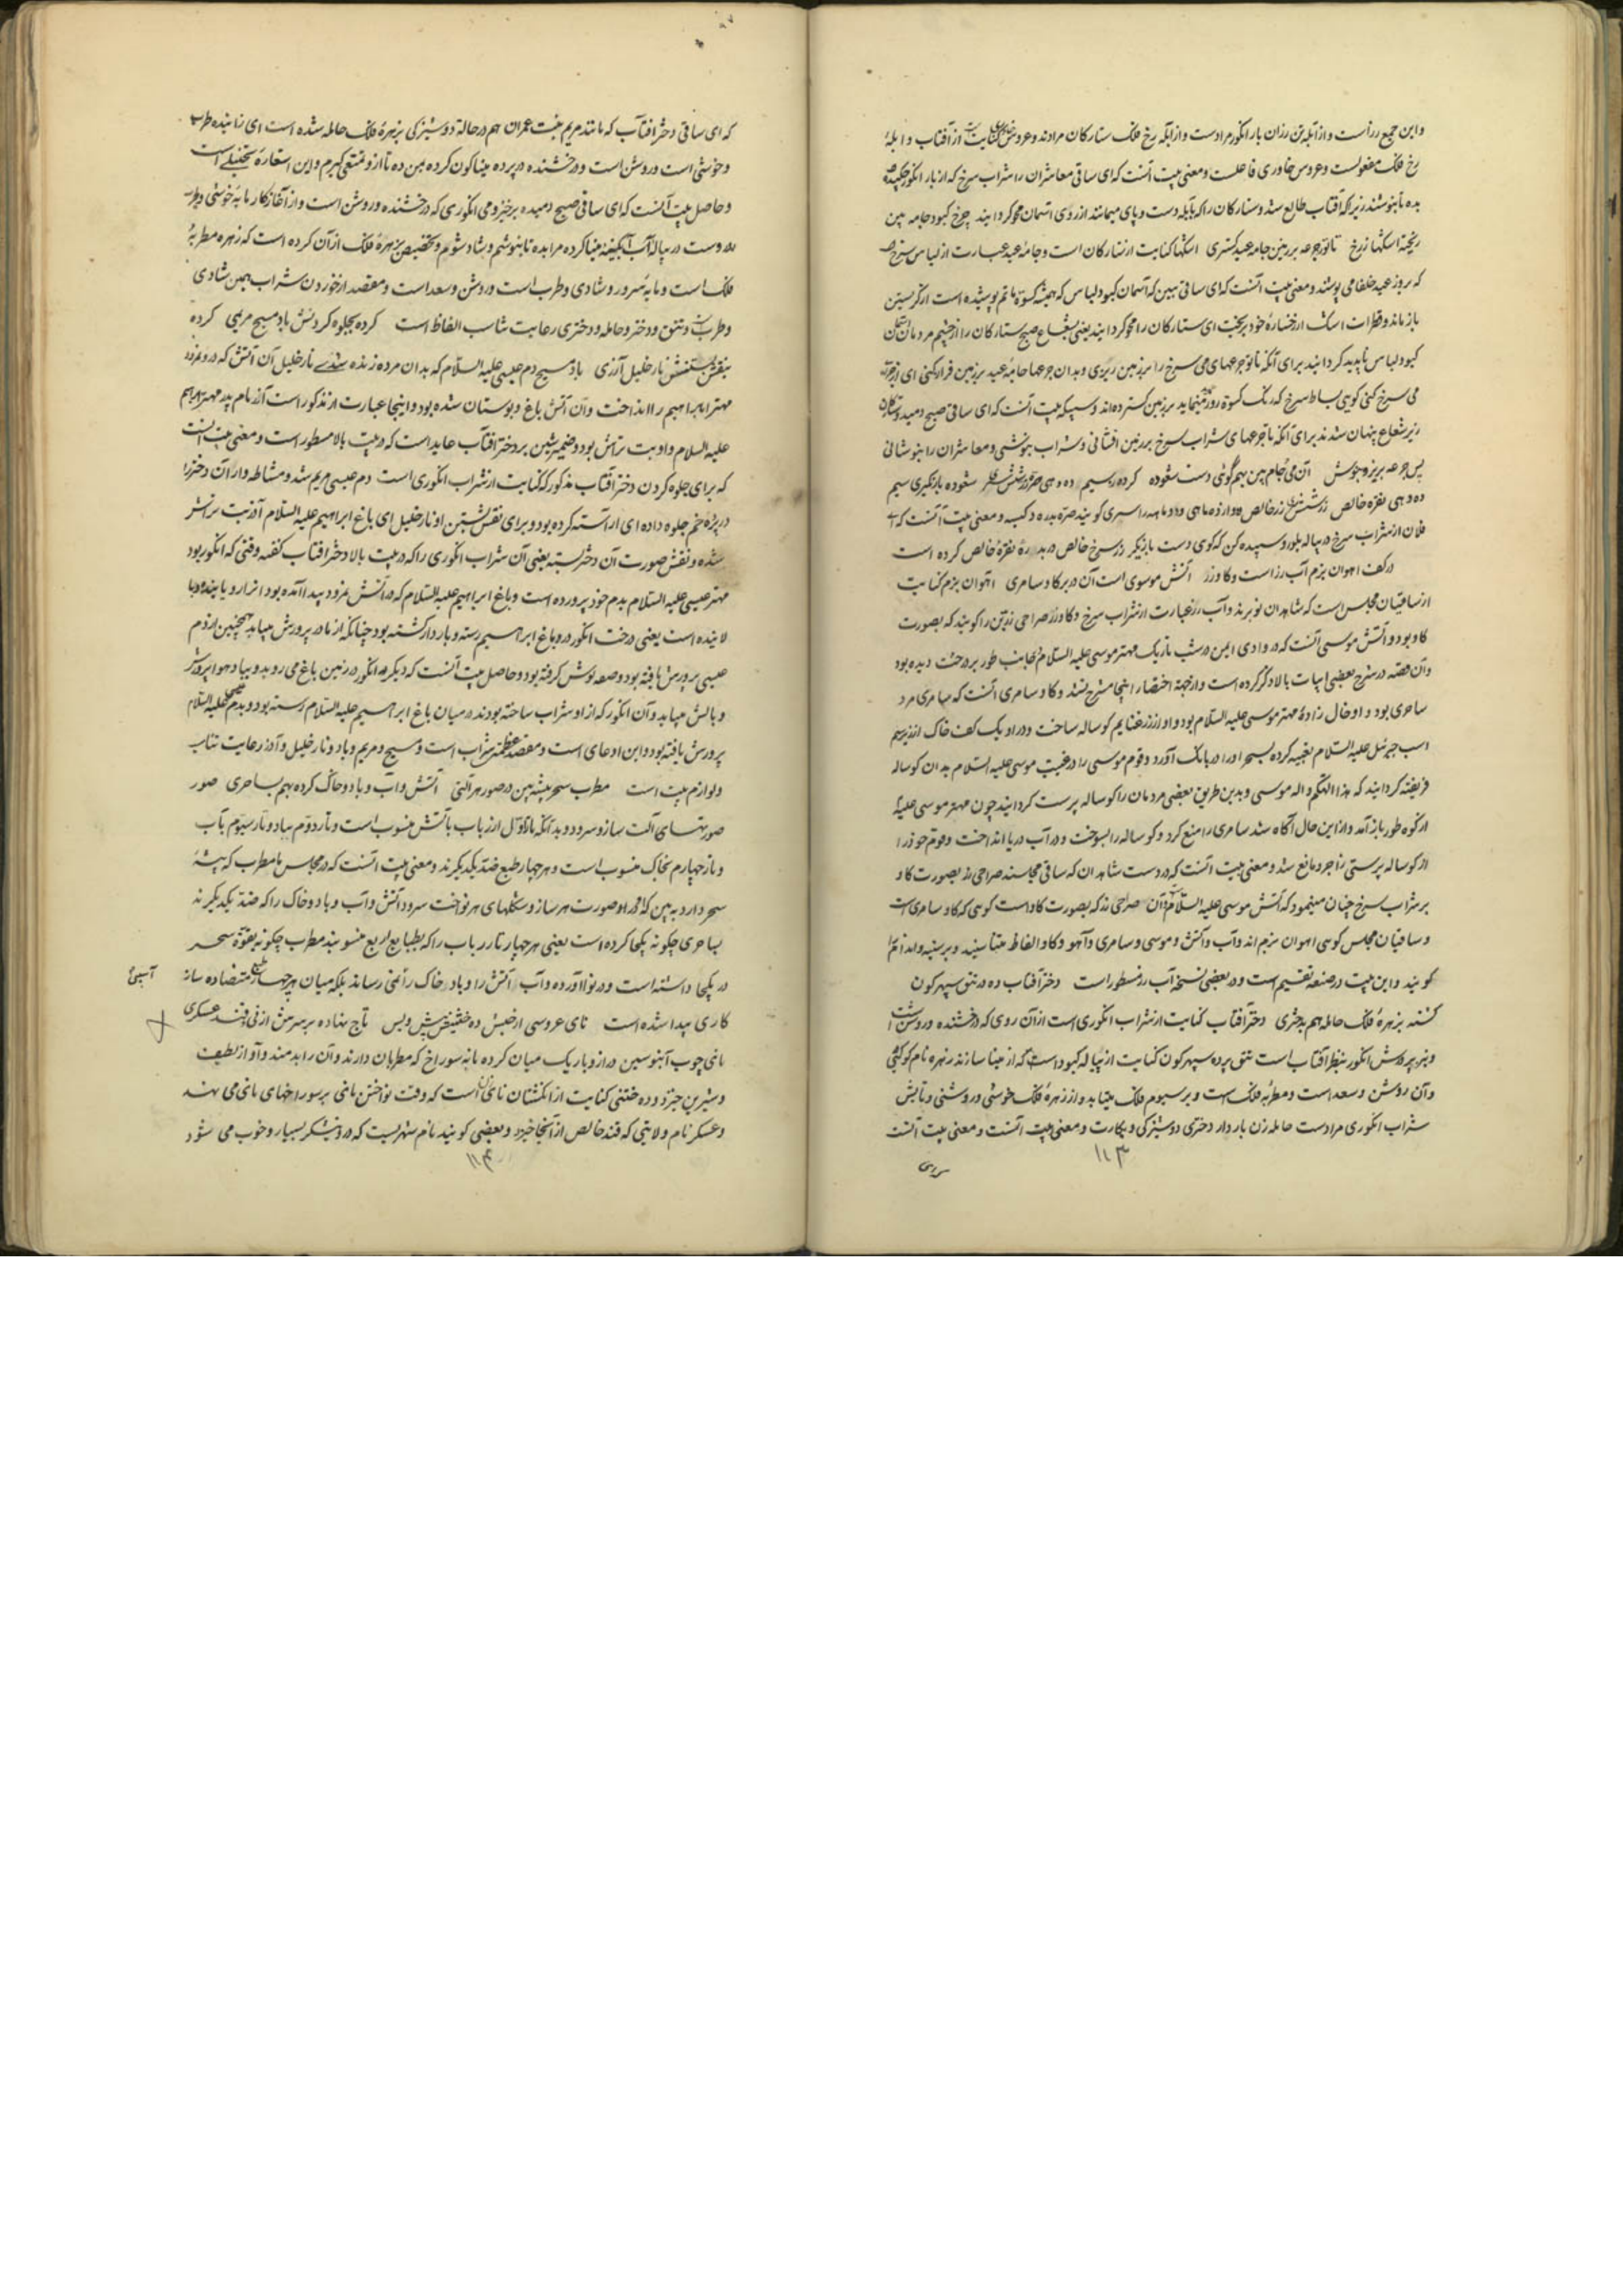 و این جمع رز است و از آبله تن رزان بار انکور مراد است و از آبله رخ فلک ستارکان مرادند و عروس خاوری کنایت از آفتاب و ابلهٔ
رخ فلک مفعولست و عروس خاوری فاعلست و معنی بیت آنست که ای ساقی معاشران را شراب سرخ که از بار انکور چکیده
بده تا بنوشند زیرا که آفتاب طالع شد و ستارکان را که بآبله دست و پای میمانند از روی آسمان محو کردانید چرخ کبود جامه بین
ریخته اشکها ز رخ تا تو ز جرعه بر زمین جامه عید کستری اشکها کنایت از ستارکان است و جامهٔ عید عبارت از لباس سرخ
که روز عید خلفا می پوشند و معنی بیت آنست که ای ساقی ببین که آسمان کبود لباس که همیشه کسوة ماتم پوشیده است از کریستن
باز ماند و قطرات اشک از رخسارهٔ خود بریخت ای ستارکان را محو کردانید یعنی بشعاع صبح ستارکان را از چشم مردمان
کبود لباس ناپدید کردانید برای آنکه تا تو جرعهای می سرخ را بر زمین ریزی و بدان جرعها جامهٔ عید بر زمین فراز کنی ای از جرعه
می سرخ کنی کویی بساط سرخ که رنک کسوة روز عید مینماید بر زمین کسترده اند و سپیکه بیت آنست که ای ساقی صبح دمید و ستارکان
زیر شعاع پنهان شدند برای آنکه تا جرعهای شراب سرخ بر زمین افشانی و شراب بنوشی و معاشران را بنوشانی
پس جرعه بریز و بنوش آن می و جام بین بهم کوئی دست شعوده کرده ز سیم ده دهی صرهٔ زر شش سری شعوده بازیکری سیم
ده دهی نقره خالص زر شش سری زر خالص
فلان از شراب سرخ در پیاله بلور و سپیده کن که کوی دست بازیکر زر سرخ خالص در بدرهٔ نقرهٔ خالص کرده است
در کف اهوان بزم آب رز است و کاو زر آتش موسوی است آن در بر کاو سامری اهوان بزم کنایت
از ساقیان مجلس است که شاهدان نوبر ند و آب رز عبارت از شراب سرخ و کاو زر صراحی زرین را کویند که بصورت
کاو بود و آتش موسی آنست که در وادی ایمن در شب تاریک مهتر موسی علیه السلام بجانب طور بر درخت دیده بود
و آن قصه در شرح بعضی ابیات بالا ذکر کرده است و از جهة اختصار اینجا مشرح نشد و کاو سامری آنست که سامری مرد
ساحری بود و او خال زادهٔ مهتر موسی علیه السلام بود و او از زر غنایم کوساله ساخت و در او یک کف خاک از زیر سم
اسب جبرئیل علیه السلام تعبیه کرده بسحر او را در بانک آورد و قوم موسی را در غیبت موسی علیه السلام بدان کوساله
فریفته کردانید که هذا الهکم و اله موسی و بدین طریق بعضی مردمان را کوساله پرست کردانید چون مهتر موسی علیه
از کوه طور باز آمد و از این حال آکاه شد سامری را منع کرد و کوساله را بسوخت و در آب دریا انداخت و قوم خود را
از کوساله پرستی زاجر و مانع شد و معنی بیت آنست که در دست شاهدان که ساقی مجالسند صراحی زر بصورت کاو
بر شراب سرخ چنان مینمود که آتش موسی علیه السلام و آن صراحی زر که بصورت کاو است کوی که کاو سامری است
و ساقیان مجلس کوی اهوان بزم اند و آب و آتش و موسی و سامری و آهو و کاو الفاظ متناسبند
کویند و این بیت در صنعه تقسیم است و در بعضی نسخه آب رز مسطور است دختر آفتاب ده در تتق سپهر کون
کشته بزهرهٔ فلک حامله هم بدختری دختر آفتاب کنایت از شراب انکوری است از آن روی که درخشنده و روشن است
و نیز پرورش انکور بنظر آفتاب است تتق پرده سپهر کون کنایت از پیاله کبود است که از مینا سازند زهره نام کوکبی
و آن روشن و سعد است و مطربهٔ فلک است و بر سیوم فلک میتابد و از زهرهٔ فلک خوشی و روشنی و تابش
شراب انکوری مراد است حامله زن باردار دختری دوشیزکی و بکارت و معنی بیت آنست و معنی بیت آنست
۱۱۳
که ای ساقی دختر آفتاب که مانند مریم بنت عمران هم در حالة دوشیزکی بزهرهٔ فلک حامله شده است ای زاینده طرب
و خوشی است و روشن است و درخشنده در پرده مینا کون کرده بمن ده تا از و تمتعی کیرم و این استعارهٔ تخییلی است
و حاصل بیت آنست که ای ساقی صبح دمیده برخیز و می انکوری که درخشنده و روشن است و از آغاز کار مایه خوشی و طرب
در وست در پیاله آب آبکینهٔ مینا کرده مرا بده تا بنوشم و شاد شوم و تخصیص بزهرهٔ فلک از آن کرده است که زهره مطربهٔ
فلک است و مایهٔ سرور و شادی و طرب است و روشن و سعد است و مقصد از خوردن شراب همین شادی
و طرب است و تتق و دختر و حامله و دختری رعایت تناسب الفاظ است کرده بجلوه کردنش باد مسیح مریمی کرده
بنقش بستنش نار خلیل آزری باد مسیح دم عیسی علیه السلام که بدان مرده زنده شدی نار خلیل آن آتش که در و نمرود
مهتر ابراهیم را انداخت و آن آتش باغ و بوستان شده بود و اینجا عبارت از نذکور است آزر نام پدر مهتر ابراهیم
علیه السلام و او بت تراش بود و ضمیر شین بر دختر آفتاب عاید است که در بیت بالا مسطور است و معنی بیت آنست
که برای جلوه کردن دختر آفتاب مذکور که کنایت از شراب انکوری است دم عیسی مریم شد و مشاطه وار آن دختر را
در پرده خم جلوه داده ای آراسته کرده بود و برای نقش بستن او نار خلیل ای باغ ابراهیم علیه السلام آزر بت تراش
شده و نقش صورت آن دختر بسته یعنی آن شراب انکوری را که در بیت بالا دختر آفتاب کفته وقتی که انکور بود
مهتر عیسی علیه السلام بدم خود پرورده است و باغ ابراهیم علیه السلام که در آتش نمرود پیدا آمده بود
لانیده است یعنی درخت انکور در و باغ ابراهیم رسته و باردار کشته بود چنانکه از مادر پرورش میابد همچنین از دم
عیسی پرورش یافته بود و حاصل بیت آنست که دیکر انکور در زمین باغ می روید و بباد و هوا پرورش
و بالش میابد و آن انکور که از او شراب ساخته بودند در میان باغ ابراهیم علیه السلام رسته بود و بدم عیسی علیه السلام
پرورش یافته بود و این ادعای است و مقصد عظمت شراب است و مسیح و مریم و باد و نار خلیل و آزر رعایت تناسب
و لوازم بیت است مطرب سحر پیشه بین در صور هر آلتی آتش و آب و باد و خاک کرده بهم بساحری صور
صورتهای آلت ساز و سرود و بدانکه تار اول از رباب باتش منسوب است و تار دوم بباد و تار سیوم بآب
و تار چهارم بخاک منسوب است و هر چهار طبع ضد یکدیکرند و معنی بیت آنست که در مجلس ما مطرب که پیشهٔ
سحر دارد ببین که در او صورت هر ساز و شکلهای هر نواخت سرود آتش و آب و باد و خاک را که ضد یکدیکرند
بساحری چکونه یکجا کرده است یعنی هر چهار تار رباب را که بطبایع اربع منسوبند مطرب چکونه بقوة سحر
در یکجا داشته است و در نوا آورده و آب آتش را و باد خاک را نمی رساند بلکه میان هر چهار طبع متضاده ساز آسیبی
کاری پیدا شده است نای عروسی از حبش ده ختنیش پیش و پس تاج نهاده بر سرش از نی قند عسکری
نای چوب آبنوسین دراز و باریک میان کرده با نه سوراخ که مطربان دارند و آن را بدمند و آواز لطیف
و شیرین خیزد و ده ختنی کنایت از انکشتان نای زن است که وقت نواختن نای بر سوراخهای نای می نهند
و عسکر نام ولایتی که قند خالص از آنجا خیزد و بعضی کویند نام شهریست که در و نیشکر بسیار و خوب می شود
۱۱۴